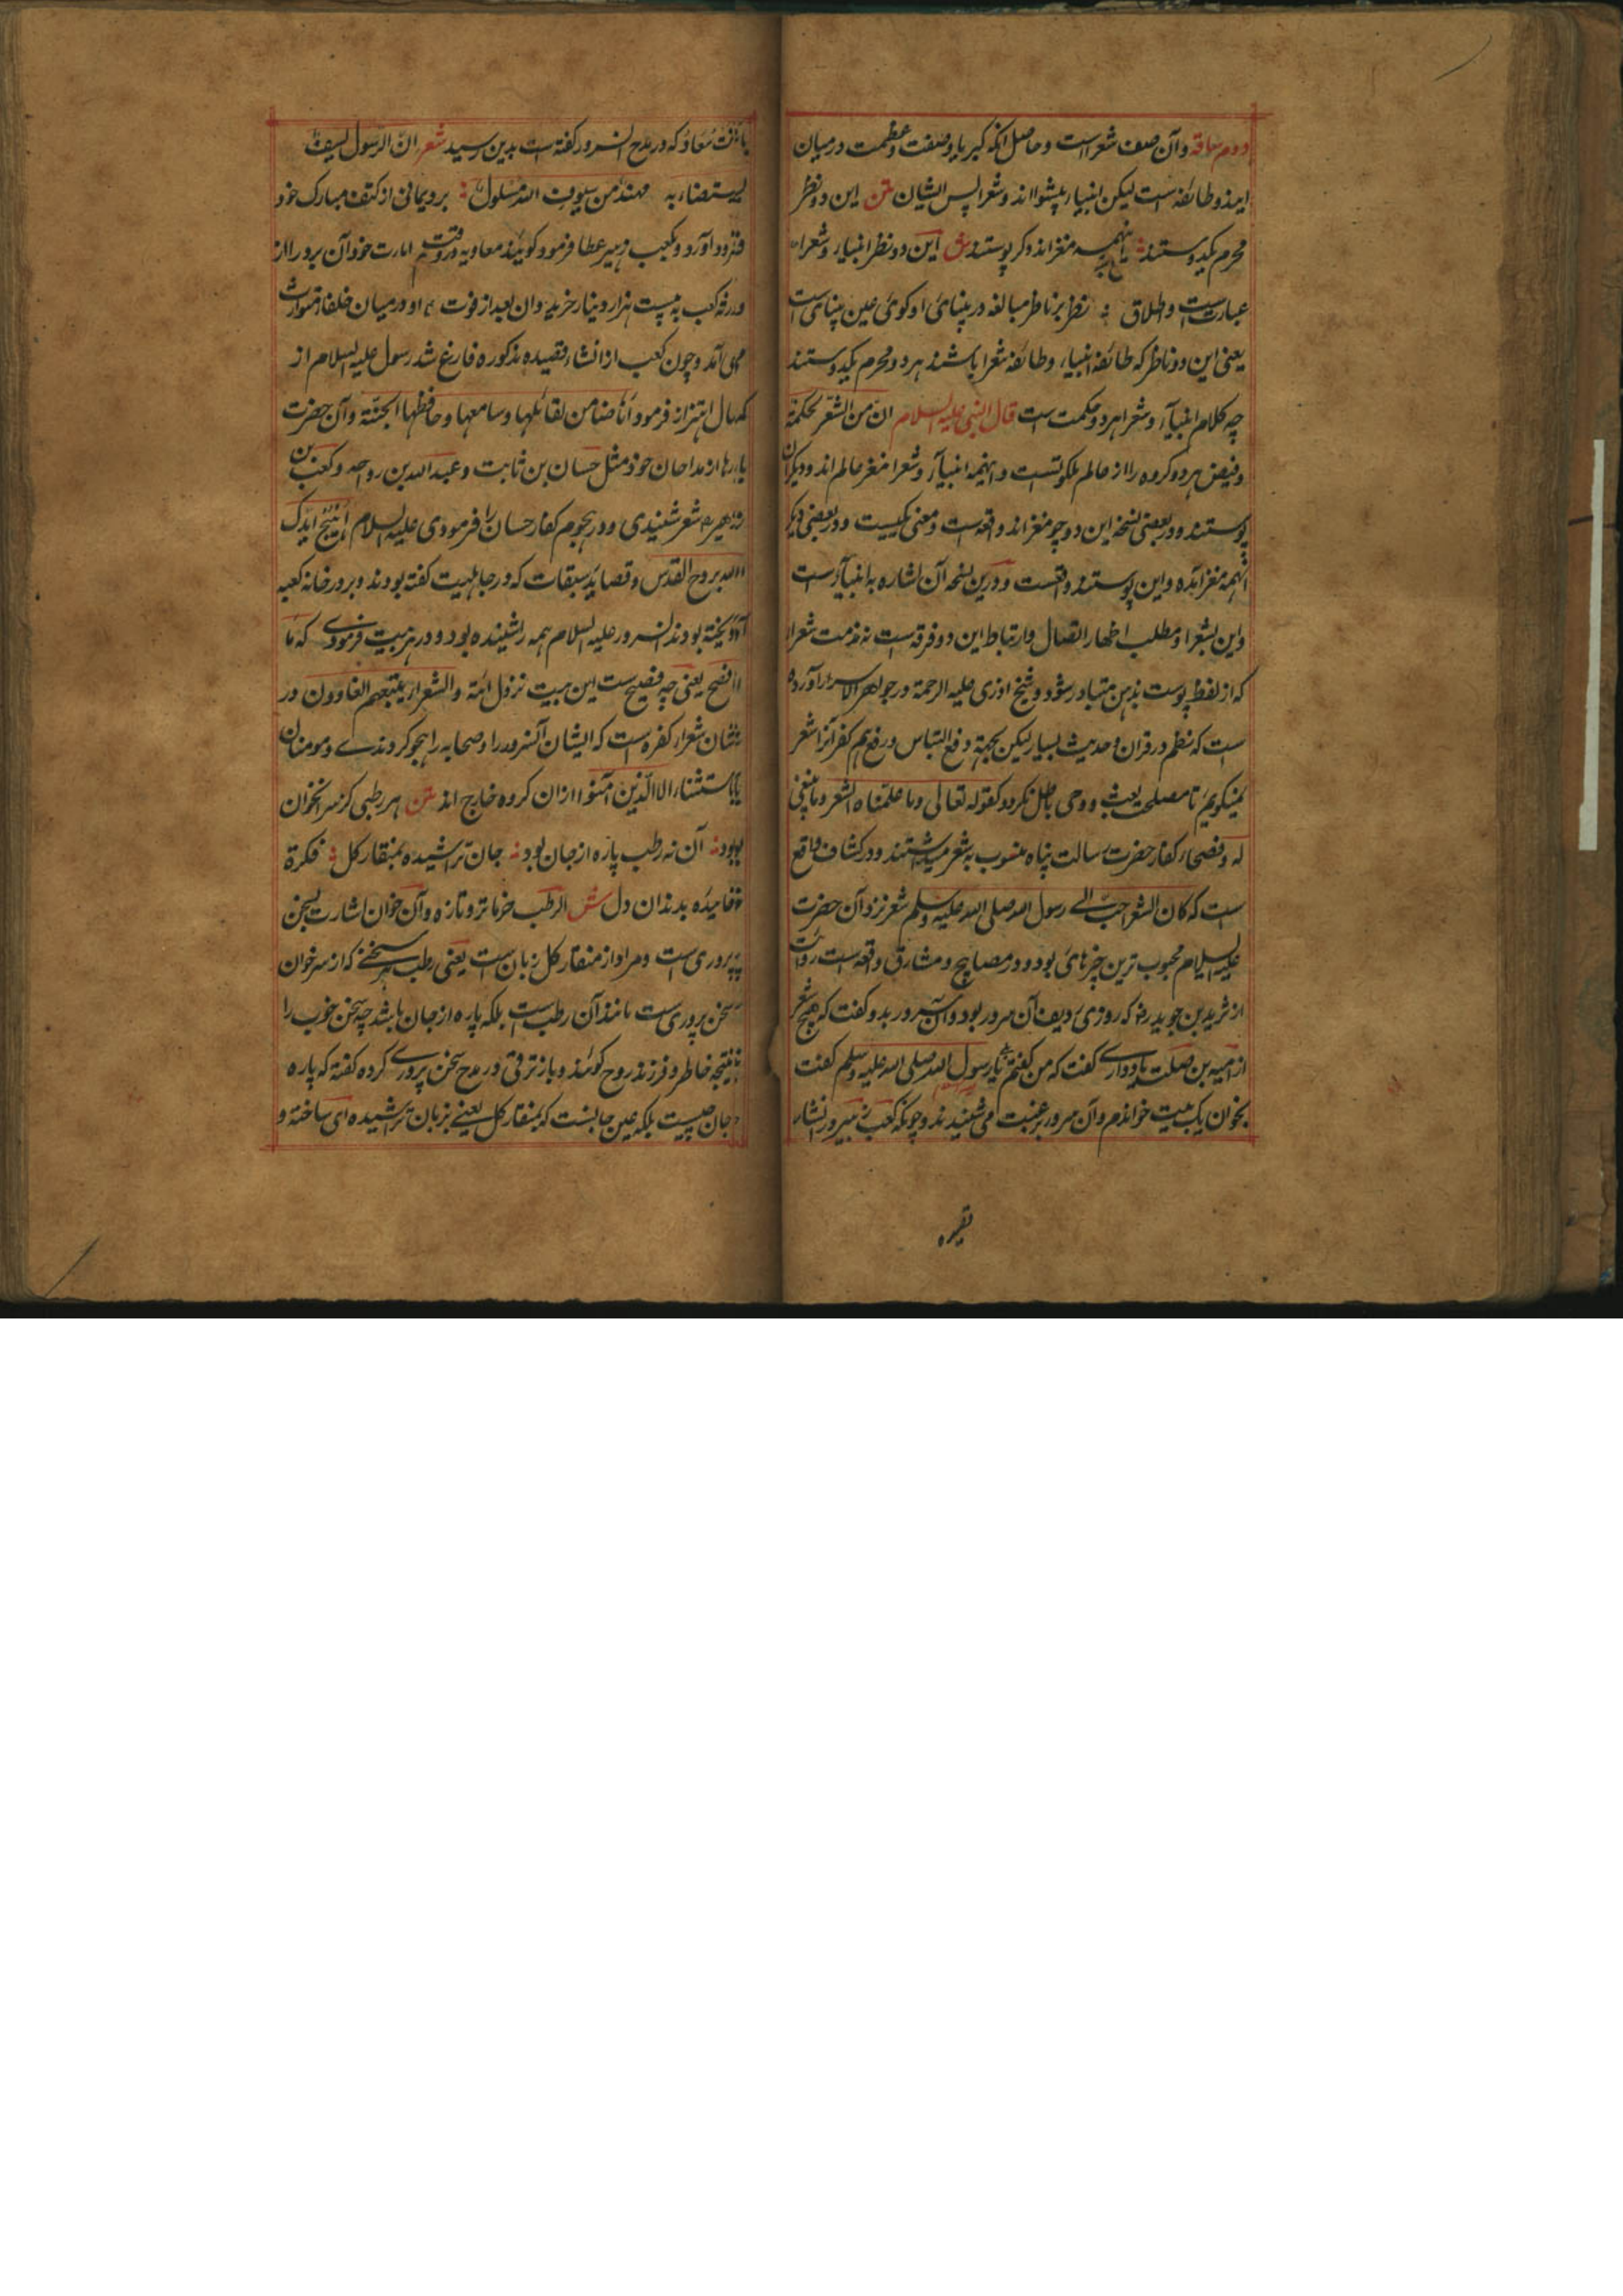 دوم ساقه وآن صف شعراست وحاصل آنکه کبریا وصفت وعظمت درمیان
ایندوطائفه است لیکن انبیاء پیشوااند وشعرا پس ایشان متن این دونظر
محرم یکدوستند اینهمه مغزاند ودگر پوستند ش این دونظر انبیاء وشعراء
عبارتست واطلاق نظر برناظر مبالغه دربینائی اوگوئی عین بینائی است
یعنی این دوناظر که طائفه انبیاء وطائفه شعرا باشند هردو محرم یکدوستند
چه کلام انبیاء وشعرا هردو حکمت است قال النبی علیه السلام ان من الشعر لحکمة
وفیض هردوگروه را از عالم ملکوتست واینهمه انبیاء وشعرا مغز عالم اند ودیگران
پوستند ودربعضی نسخه این دو چو مغزاند واقعه است ومعنی یکیست ودربعضی دیگر
آنهمه مغز آمده واین پوستند واقعست ودرین نسخه آن اشاره به انبیاء است
واین بشعرا ومطلب اظهار اتصال وارتباط این دوفرقه است نه مذمت شعراء
که از لفظ پوست بذهن متبادر شود وشیخ آذری علیه الرحمة درجواهر الاسرار آورده
است که نظم درقران وحدیث بسیار لیکن بجهة دفع التباس ورفع کفر آنرا شعر
نمیگویم تا مصلحت بعث ووحی باطل نگردد کقوله تعالی وما علمناه الشعر وما ینبغی
له وفصحاء کفار حضرت رسالت پناه منسوب به شعر میداشتند ودرکشاف واقع
است که کان الشعر احب الی رسول الله صلی الله علیه وسلم شعر نزد آن حضرت
علیه السلام محبوب ترین چیزهای بود ودر مصابیح ومشارق واقعه است روایت
از شرید بن سوید که روزی ردیف آن سرور بود وآن سرور بدو گفت که هیچ شعر
از امیه بن صلت یادداری گفت که من گفتم یا رسول الله صلی الله علیه وسلم گفت
بخوان یک بیت خواندم وآن سرور برغبت می شنیدند وچونکه کعب زهیر در انشاء
قصیده
بانت سعاد که در مدح آنسرور گفته است بدین رسید شعر ان الرسول لسیف
یستضاء به مهند من سیوف الله مسلول برد یمانی از کتف مبارک خود
فرود آورد وبکعب زهیر عطا فرمود گویند معاویه دروقت امارت خود آن برد را از
ورثه کعب به بیست هزار دینار خرید وآن بعد از فوت او درمیان خلفا متوارث
می آمد وچون کعب از انشاء قصیده مذکوره فارغ شد رسول علیه السلام از
کمال اهتزاز فرمود انا ضامن لقائلها وسامعها وحافظها الجنة وآن حضرت
بارها از مداحان خود مثل حسان بن ثابت وعبد الله بن رواحه وکعب بن
زهیر شعر شنیدی ودر هجوم کفار حسان را فرمودی علیه السلام اهج ایدک
الله بروح القدس وقصاید سبقات که درجاهلیت گفته بودند وبر درخانه کعبه
آویخته بودند آنسرور علیه السلام همه را شنیده بود ودر هر بیت فرمودی که ما
افصح یعنی چه فصیح ست این بیت نزول ائمة والشعراء یتبعهم الغاوون در
شان شعراء کفره است که ایشان آنسرور را وصحابه را هجو کردندے ومومنان
باستثناء الا الذین آمنوا ازان گروه خارج اند متن هر رطبی کز سر آنخوان
بود آن نه رطب پاره از جان بود جان تراشیده بمنقار گل فکرة
خائیده بدندان دل ش الرطب خرما تر وتازه وآن خوان اشارت بسخن
پروری است ومراد از منقار گل زبان است یعنی رطب سخنے که از سر خوان
سخن پروری ست مانند آن رطب است بلکه پاره از جان باشد چه سخن خوب را
نتیجه خاطر وفرزند روح گویند وباز ترقی در مدح سخن پروری کرده گفته که پاره
جان چیست بلکه عین جانست که بمنقار گل یعنے بزبان تراشیده ای ساخته و